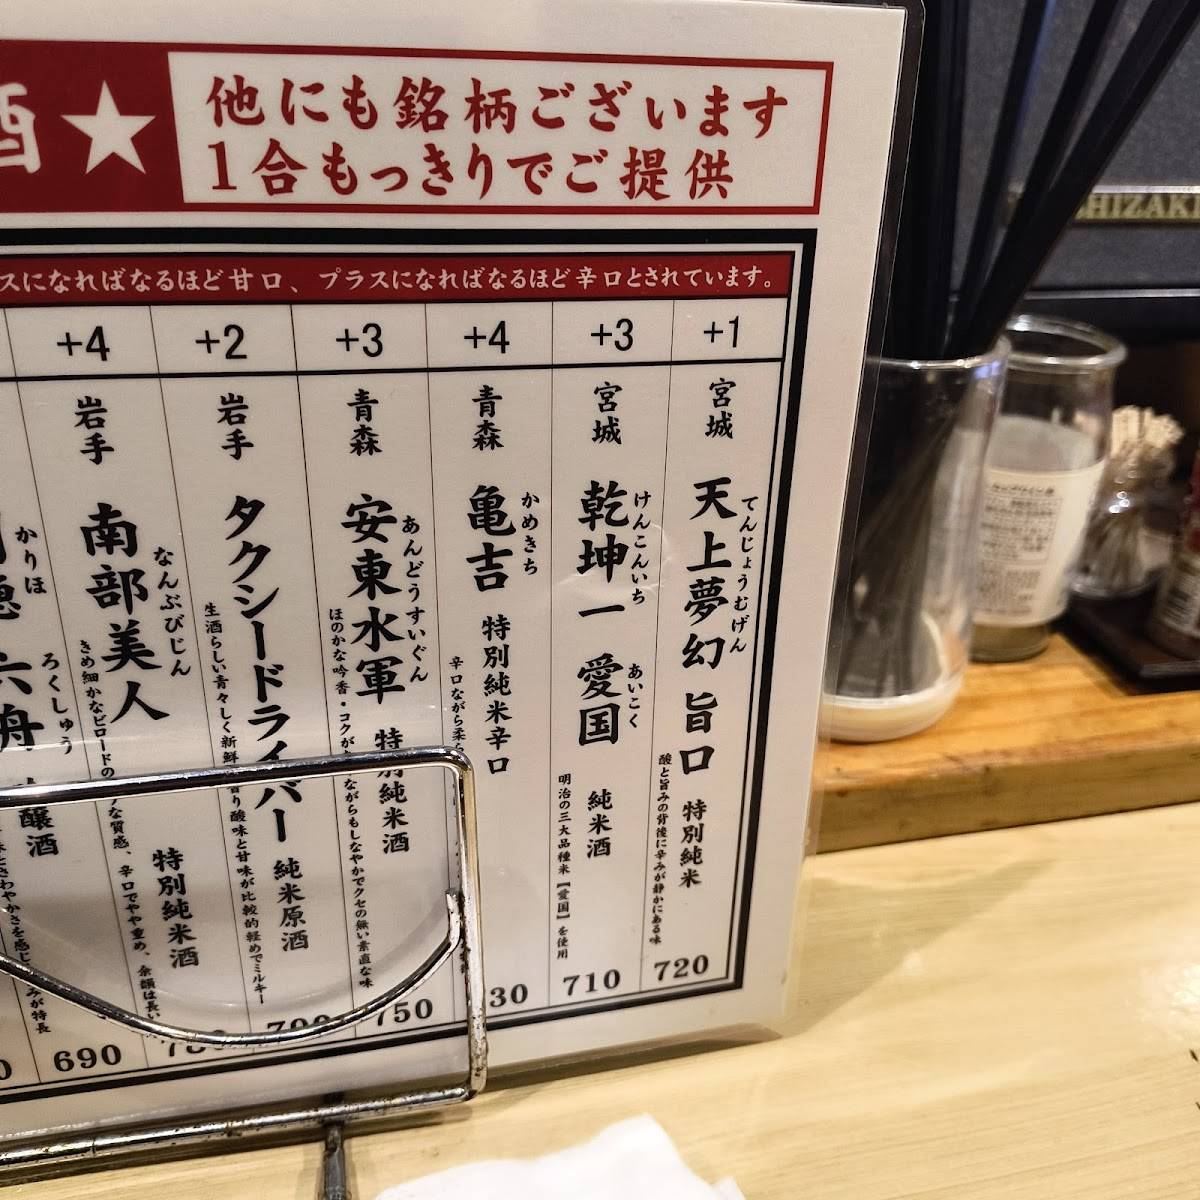 酒★
他にも銘柄ございます
1合もっきりでご提供
スになればなるほど甘口、プラスになればなるほど辛口とされています。
+1
宮城
天上夢幻 旨口 特別純米
てんじょうむげん
酸と旨みの背後に辛みが静かにある味
720
+3
宮城
乾坤一 愛国 純米酒
けんこんいち あいこく
明治の三大品種米【愛国】を使用
710
+4
青森
亀吉 特別純米辛口
かめきち
辛口ながら柔ら
30
+3
青森
安東水軍 特別純米酒
あんどうすいぐん
ほのかな吟香・コクが
ながらもしなやかでクセの無い素直な味
750
+2
岩手
タクシードライバー 純米原酒
生酒らしい青々しく新鮮
香り酸味と甘味が比較的軽めでミルキー
+4
岩手
南部美人 特別純米酒
なんぶびじん
きめ細かなビロードの
な質感、辛口でやや重め、余韻は長い
690
かりほ ろくしゅう
穂 六舟
醸酒
SHIZAKI